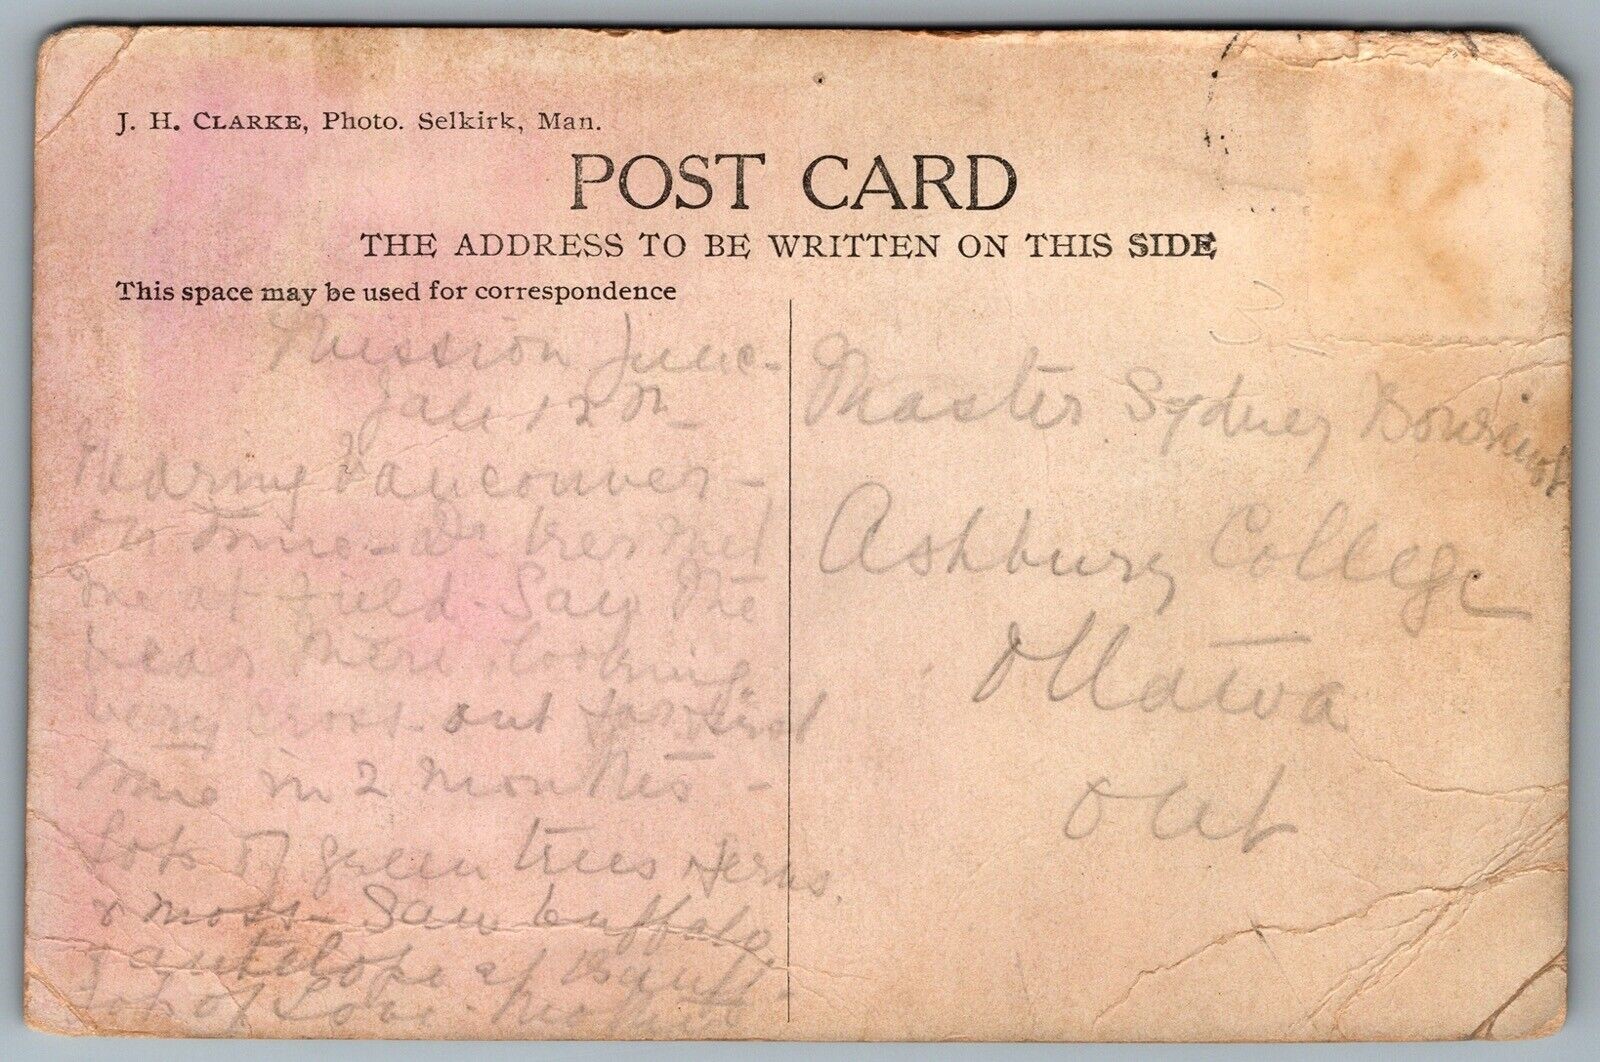 J. H. CLARKE, Photo. Selkirk, Man.
POST CARD
THE ADDRESS TO BE WRITTEN ON THIS SIDE
This space may be used for correspondence
Mission Junc-
Jan 12th
Nearing Vancouver -
on time - Dr met
me at Field. Saw the
bear there looking
very cross - out for first
time in 2 months -
Lots of green trees ferns
& moss - Saw buffalo
& antelope at Banff -
Lots of Love - Mother
Master Sydney
Ashbury College
Ottawa
Ont